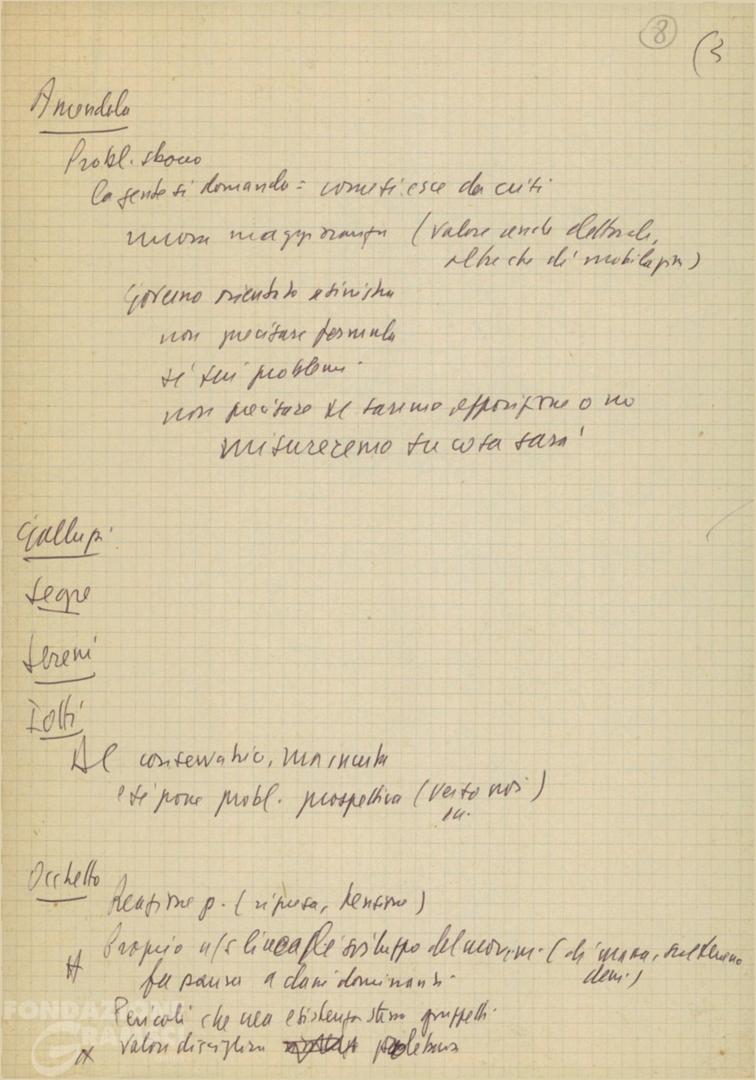 8
(3
Amendola
Probl. sbocco
la gente si domanda = come si esce da crisi
nuova maggioranza (valore anche elettorale,
oltre che di mobilitaz.)
Governo orientato a sinistra
non precisare formula
sì sui problemi.
non precisare se saremo opposizione o no
misureremo su cosa sarà
Galluzzi
Segre
Sereni
Iotti
DC conservatrice, ma incerta
e si pone probl. prospettiva (verso noi)
Occhetto
Reazione p. (ripresa, tensione)
Proprio n/s linea di sviluppo del movim. (di massa, sul terreno
dem.)
fa paura a classi dominanti.
Pericoli che essa esistenza stessa gruppetti.
valore disciplina proletaria
FONDAZIONE
GRAMSCI